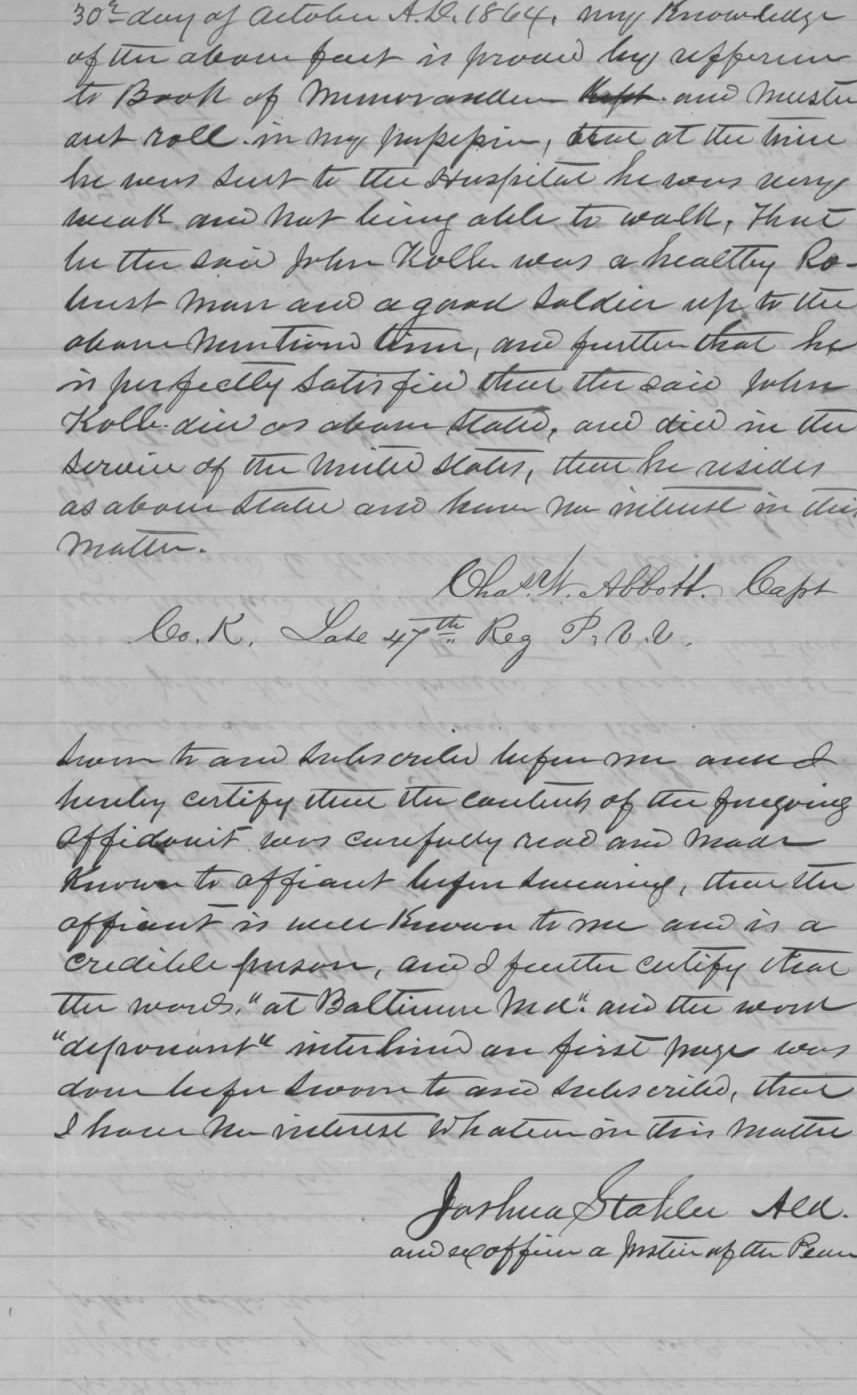 30th day of October A.D. 1864, my Knowledge
of the above fact is proved by refference
to Book of Memorandum Kept and Muster
out roll in my possession, that at the time
he was sent to the Hospital he was very
weak and not being able to walk, That
he the said John Kolb was a healthy Ro-
bust man and a good soldier up to the
above mentioned time, and further that he
is perfectly satisfied that the said John
Kolb died as above stated, and died in the
Service of the United States, that he resides
as above stated and have no interest in this
Matter.
Chas. W. Abbott. Capt
Co. K. Late 47th Reg P.V.V.
Sworn to and subscribed before me and I
hereby certify that the contents of the foregoing
affidavit was carefully read and made
Known to affiant before swearing, that the
affiant is well Known to me and is a
credible person, and I further certify that
the words, "at Baltimore Md." and the word
"deponant" interlined on first page was
done before sworn to and subscribed, that
I have no interest whatever in this matter
Joshua Stahler Ald.
and ex officio a Justice of the Peace